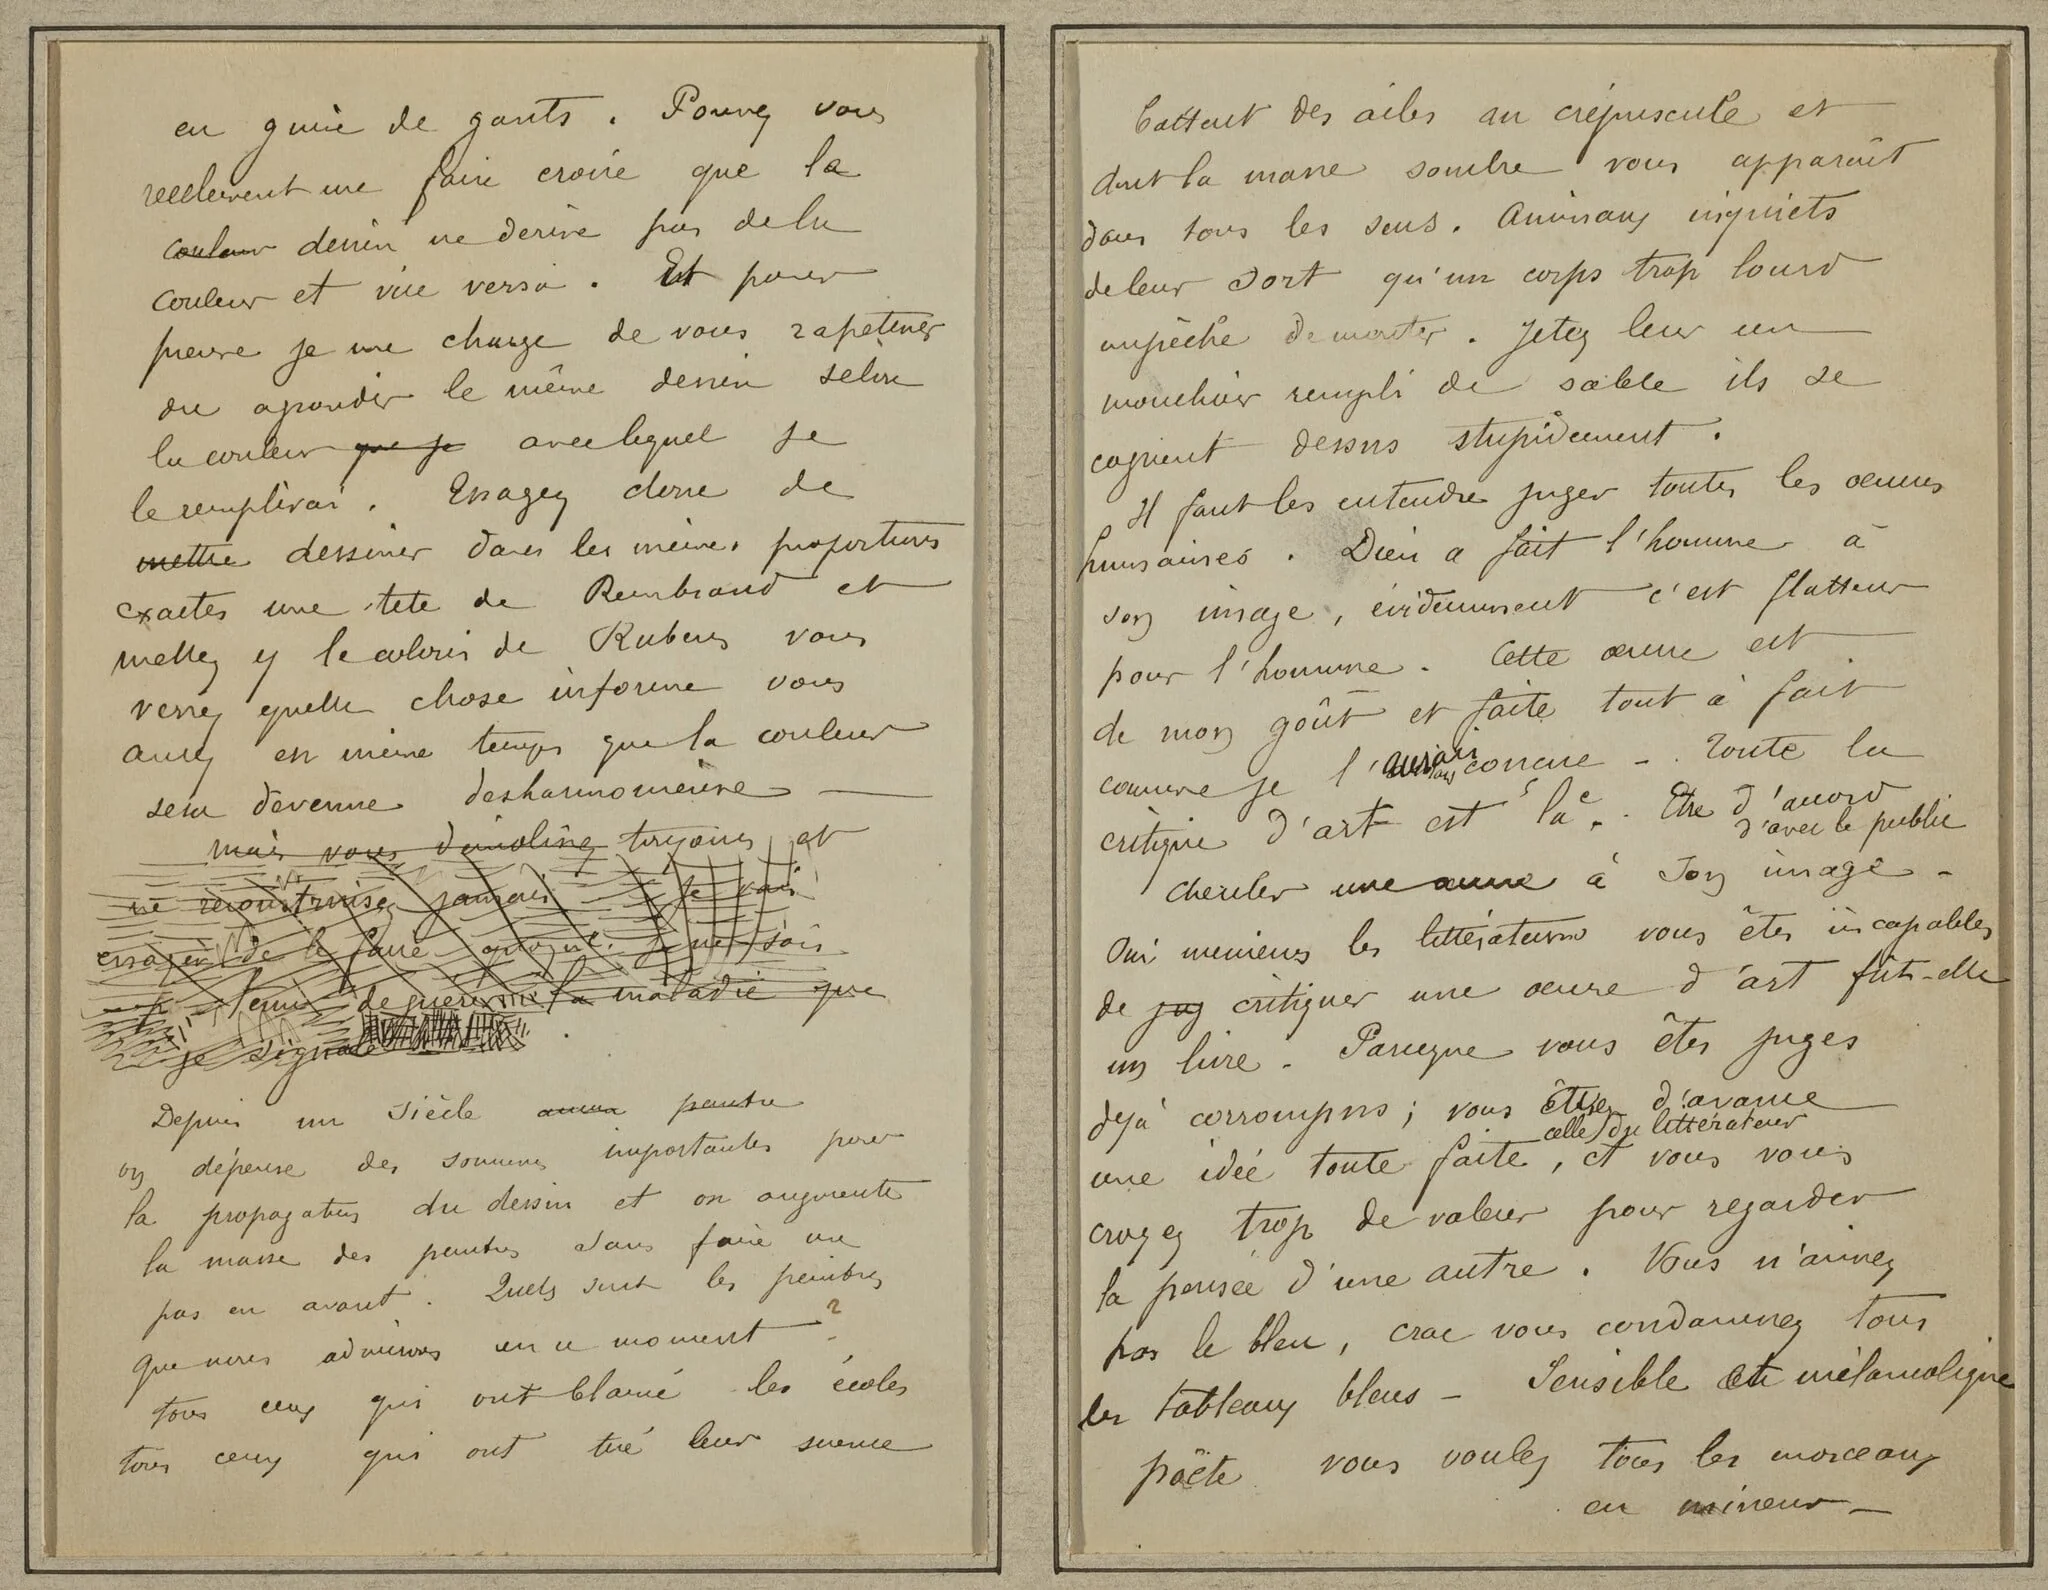 en guise de gants. Pouvez vous
reellement me faire croire que la
couleur dessin ne derive pas de la
couleur et vice versa. Et pour
preuve je me charge de vous rapetisser
ou agrandir le même dessin selon
la couleur que je avec lequel je
le remplirai. Essayez donc de
mettre dessiner dans les mêmes proportions
exactes une tete de Rembrand et
mettez y le coloris de Rubens vous
verrez quelle chose informe vous
aurez en même temps que la couleur
sera devenue desharmonieuse —
mais vous démolissez toujours et
ne reconstruisez jamais. Je vais
essayer de le faire quoique je ne sois
je signale
Depuis un siècle peintre
on dépense des sommes importantes pour
la propagation du dessin et on augmente
la masse des peintres sans faire un
pas en avant. Quels sont les peintres
que nous admirons en ce moment ?
tous ceux qui ont blamé les écoles
tous ceux qui ont tiré leur science
battent des ailes au crépuscule et
dont la masse sombre vous apparaît
dans tous les sens. Animaux inquiets
de leur sort qu'un corps trop lourd
empêche de monter. Jetez leur un
mouchoir rempli de sable ils se
cognent dessus stupidement.
Il faut les entendre juger toutes les œuvres
humaines. Dieu a fait l'homme à
son image, évidemment c'est flatteur
pour l'homme. Cette œuvre est
de mon goût et faite tout à fait
comme je l'aurais concue -. Toute la
critique d'art est là. Etre d'accord
d'avec le public
chercher une œuvre à son image -
Oui messieurs les littérateurs vous êtes incapables
de jug critiquer une œuvre d'art fût-elle
un livre - Parceque vous êtes juges
déjà corrompus; vous d'avance
celle du littérateur
une idée toute faite, et vous vous
croyez trop de valeur pour regarder
la pensée d'une autre. Vous n'aimez
pas le bleu, crac vous condamnez tous
les tableaux bleus - Sensible et mélancolique
poëte vous voulez tous les morceaux
en mineur -